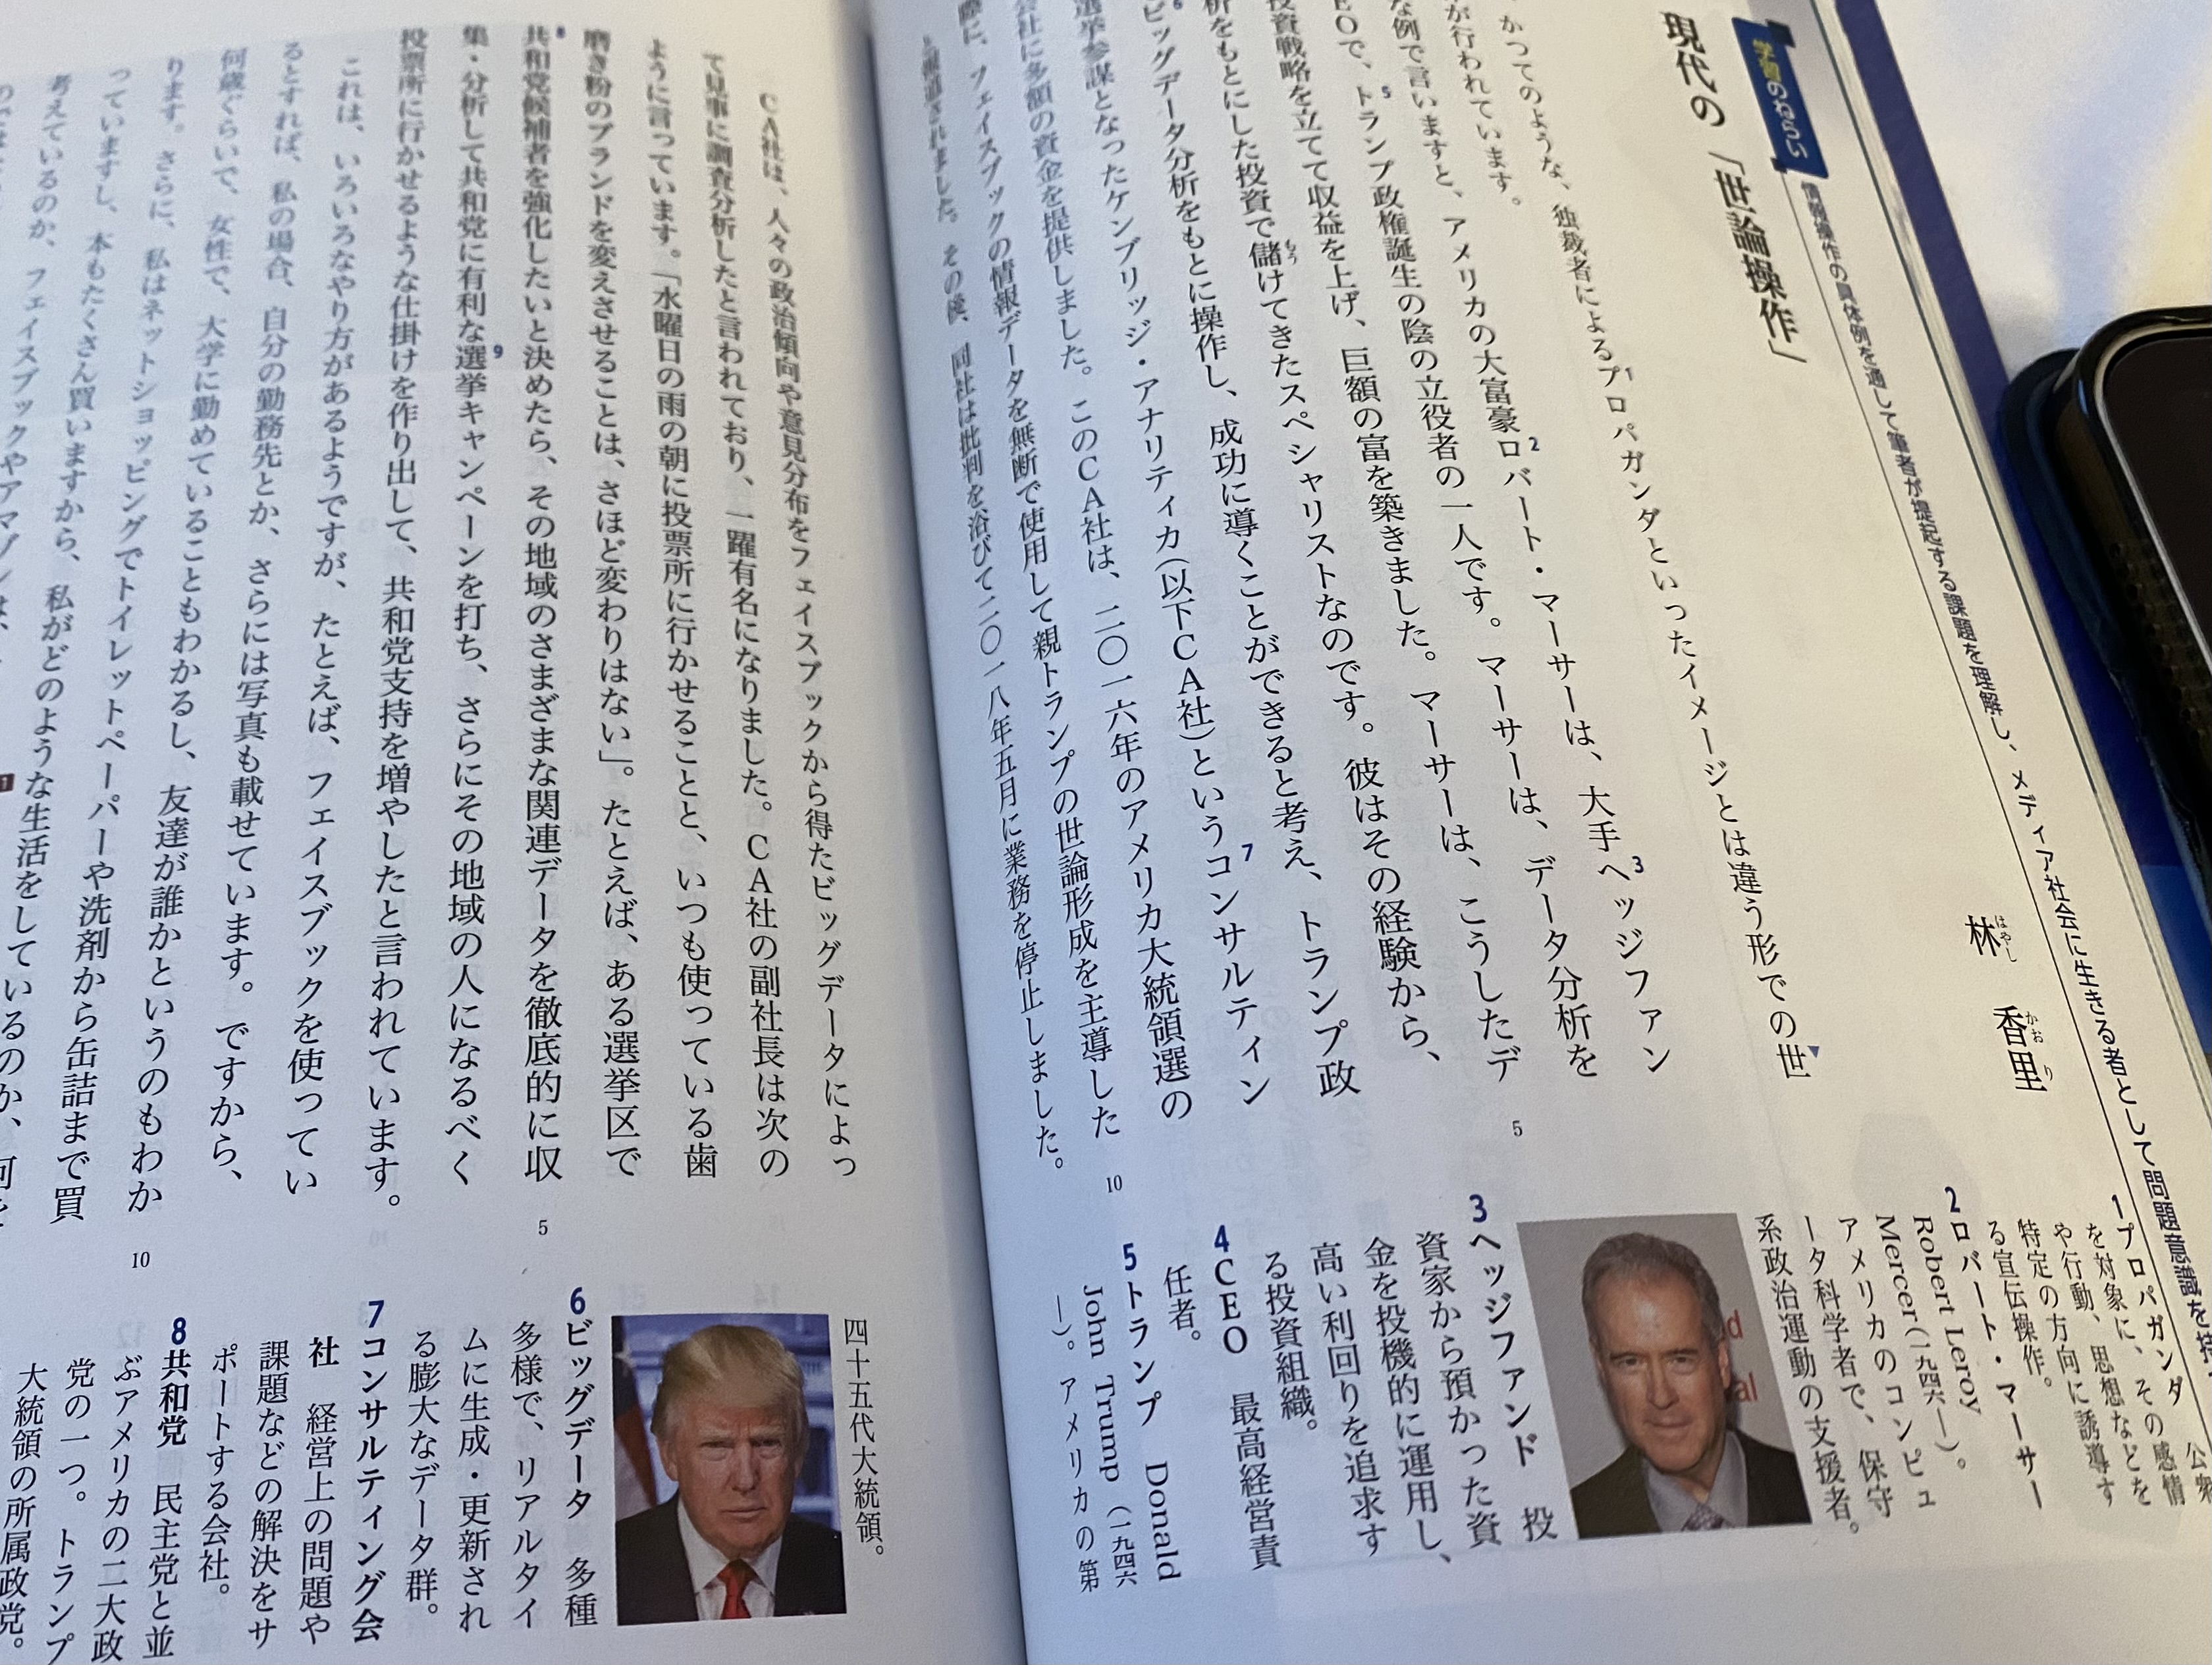 学習のねらい
情報操作の具体例を通して筆者が提起する課題を理解し、メディア社会に生きる者として問題意識を持
現代の「世論操作」
林 香里
はやし かおり
かつてのような、独裁者によるプロパガンダといったイメージとは違う形での世
が行われています。
な例で言いますと、アメリカの大富豪ロバート・マーサーは、大手ヘッジファン
EOで、トランプ政権誕生の陰の立役者の一人です。マーサーは、データ分析を
投資戦略を立てて収益を上げ、巨額の富を築きました。マーサーは、こうしたデ
析をもとにした投資で儲けてきたスペシャリストなのです。彼はその経験から、
ビッグデータ分析をもとに操作し、成功に導くことができると考え、トランプ政
選挙参謀となったケンブリッジ・アナリティカ(以下CA社)というコンサルティン
会社に多額の資金を提供しました。このCA社は、二〇一六年のアメリカ大統領選の
際に、フェイスブックの情報データを無断で使用して親トランプの世論形成を主導した
と報道されました。その後、同社は批判を浴びて二〇一八年五月に業務を停止しました。
5
10
1 プロパガンダ 公衆
を対象に、その感情
や行動、思想などを
特定の方向に誘導す
る宣伝操作。
2 ロバート・マーサー
Robert Leroy
Mercer(一九四六―)。
アメリカのコンピュ
ータ科学者で、保守
系政治運動の支援者。
3 ヘッジファンド 投
資家から預かった資
金を投機的に運用し、
高い利回りを追求す
る投資組織。
4 CEO 最高経営責
任者。
5 トランプ Donald
John Trump(一九四六
―)。アメリカの第
CA社は、人々の政治傾向や意見分布をフェイスブックから得たビッグデータによっ
て見事に調査分析したと言われており、一躍有名になりました。CA社の副社長は次の
ように言っています。「水曜日の雨の朝に投票所に行かせることと、いつも使っている歯
磨き粉のブランドを変えさせることは、さほど変わりはない」。たとえば、ある選挙区で
共和党候補者を強化したいと決めたら、その地域のさまざまな関連データを徹底的に収
集・分析して共和党に有利な選挙キャンペーンを打ち、さらにその地域の人になるべく
投票所に行かせるような仕掛けを作り出して、共和党支持を増やしたと言われています。
これは、いろいろなやり方があるようですが、たとえば、フェイスブックを使ってい
るとすれば、私の場合、自分の勤務先とか、さらには写真も載せています。ですから、
何歳ぐらいで、女性で、大学に勤めていることもわかるし、友達が誰かというのもわか
ります。さらに、私はネットショッピングでトイレットペーパーや洗剤から缶詰まで買
っていますし、本もたくさん買いますから、私がどのような生活をしているのか、何を
考えているのか、フェイスブックやアマゾンは、
5
10
四十五代大統領。
6 ビッグデータ 多種
多様で、リアルタイ
ムに生成・更新され
る膨大なデータ群。
7 コンサルティング会
社 経営上の問題や
課題などの解決をサ
ポートする会社。
8 共和党 民主党と並
ぶアメリカの二大政
党の一つ。トランプ
大統領の所属政党。